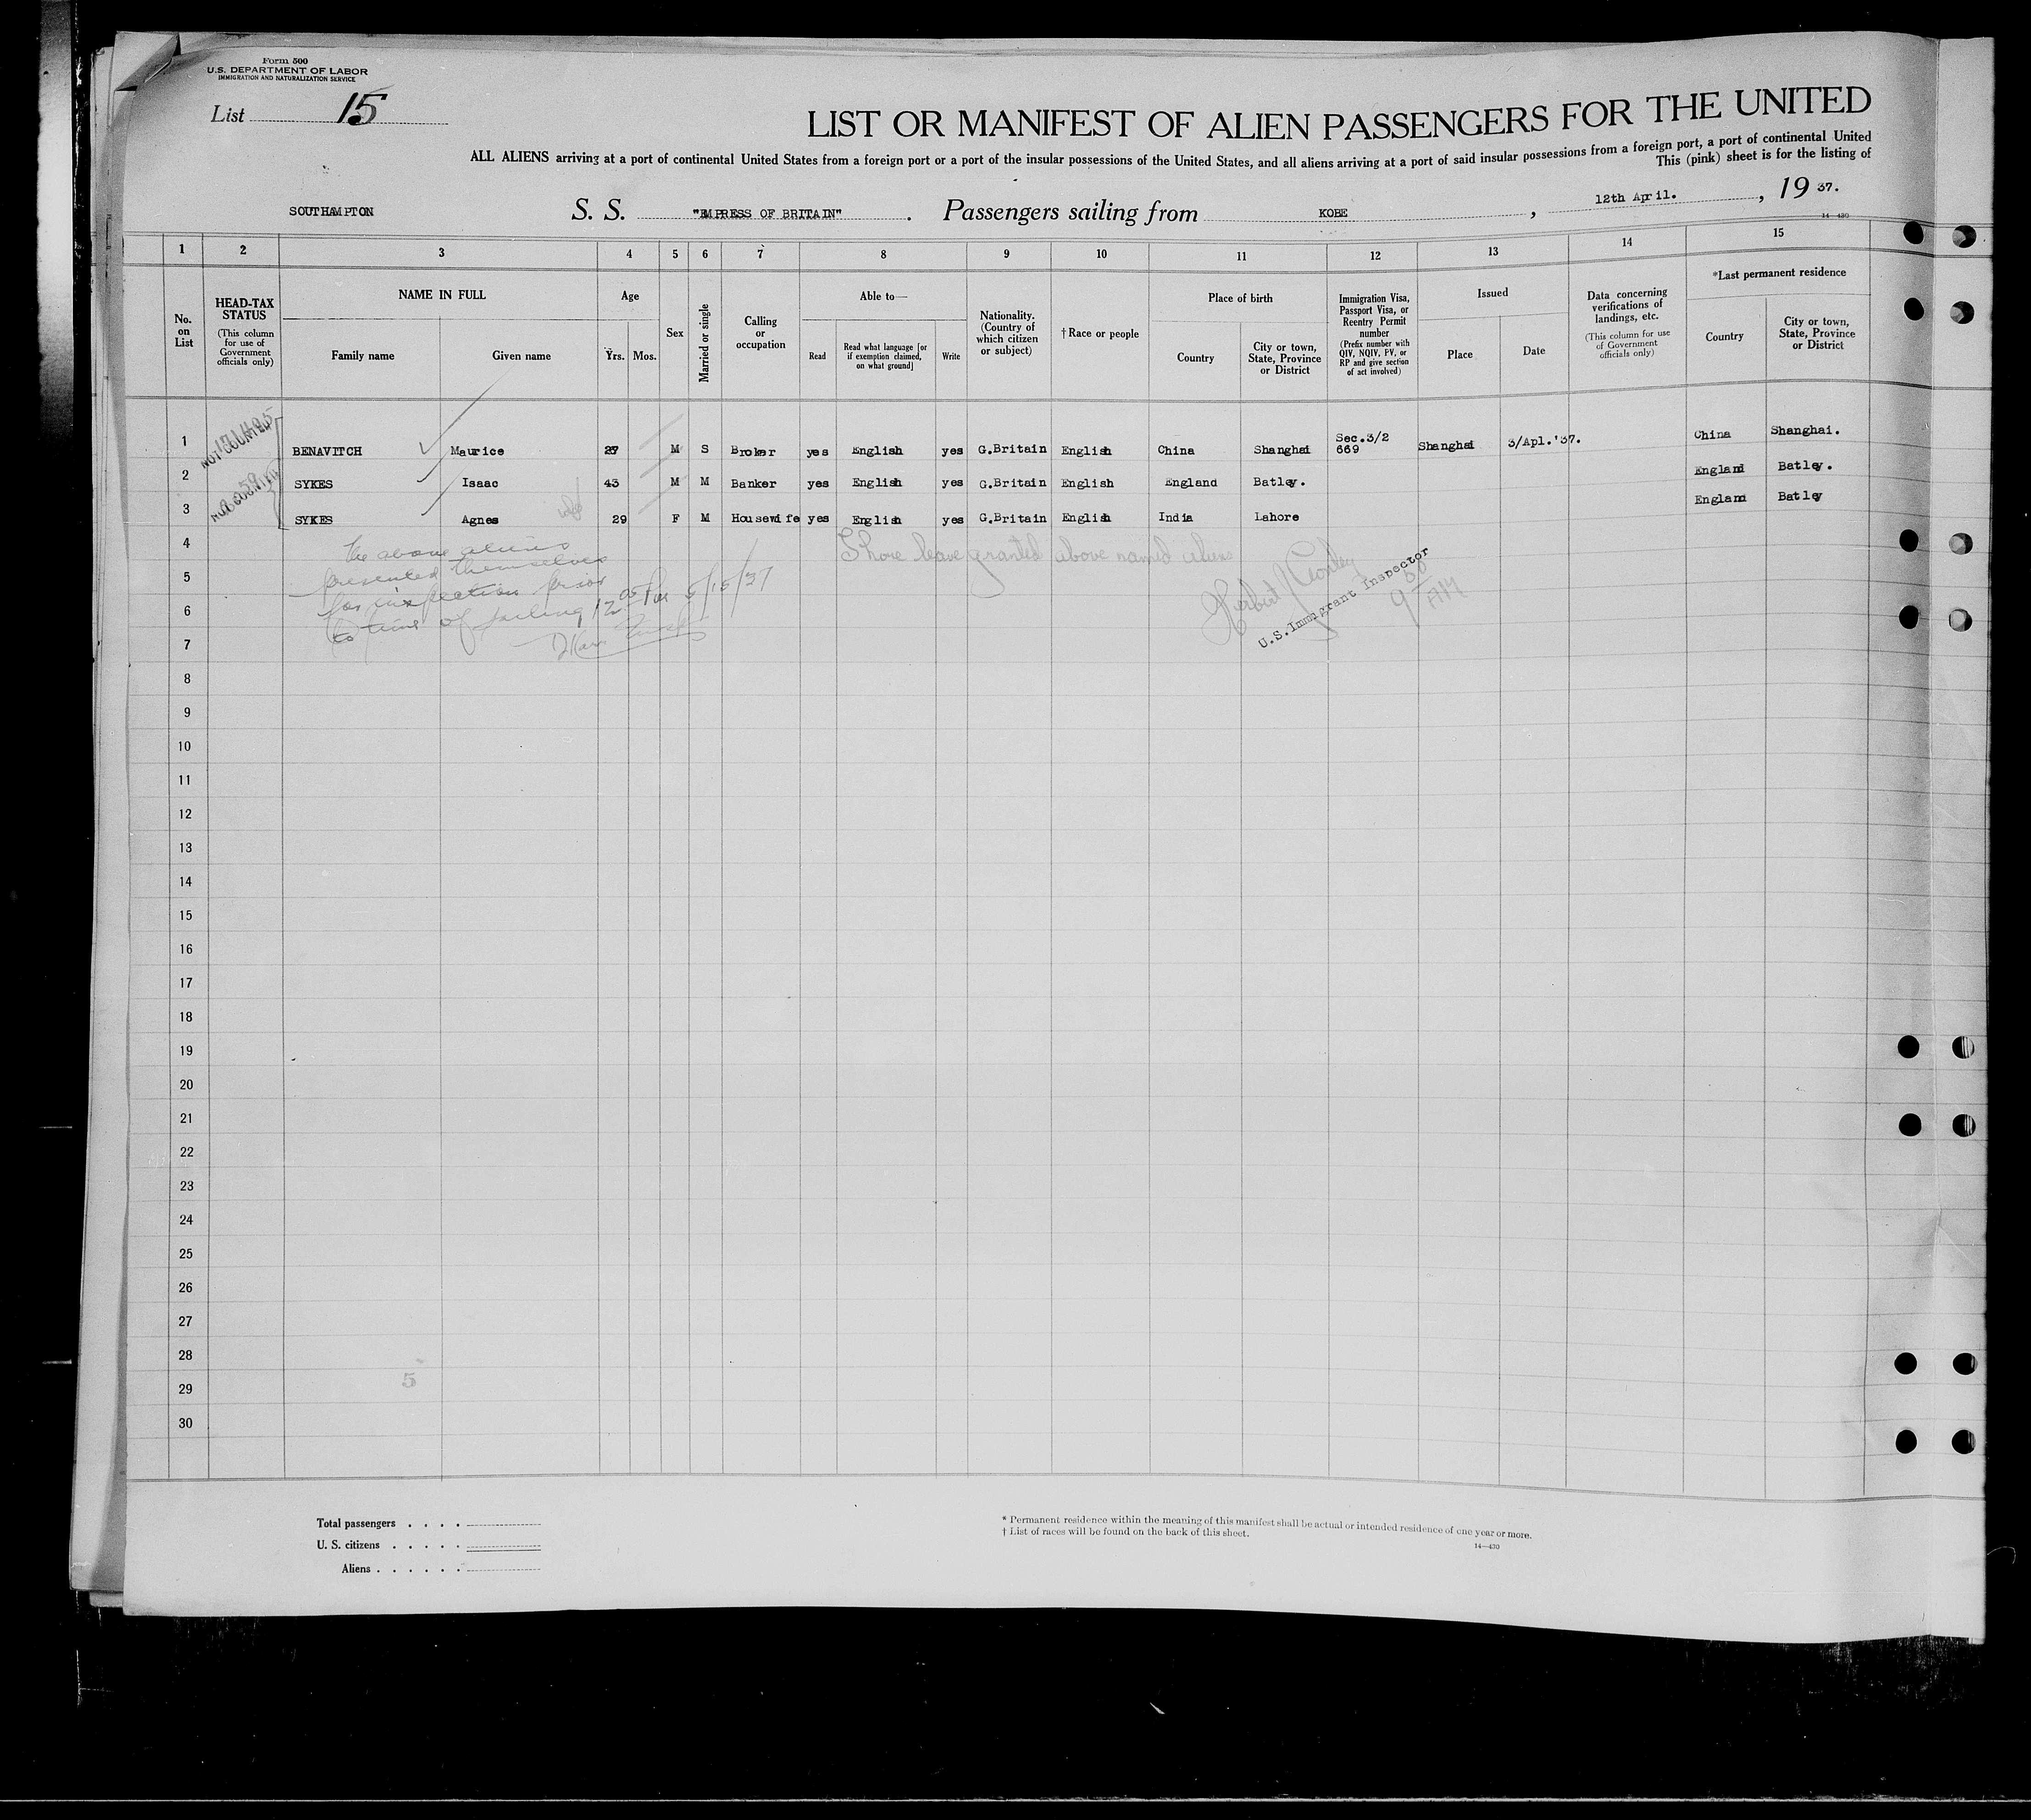 Form 500
U.S. DEPARTMENT OF LABOR
IMMIGRATION AND NATURALIZATION SERVICE
List 15
LIST OR MANIFEST OF ALIEN PASSENGERS FOR THE UNITED
ALL ALIENS arriving at a port of continental United States from a foreign port or a port of the insular possessions of the United States, and all aliens arriving at a port of said insular possessions from a foreign port, a port of continental United
This (pink) sheet is for the listing of
SOUTHAMPTON S. S. "EMPRESS OF BRITAIN" . Passengers sailing from KOBE , 12th April. , 19 37.
14—430
1 2 3 4 5 6 7 8 9 10 11 12 13 14 15
No. on List
HEAD-TAX STATUS
(This column for use of Government officials only)
NAME IN FULL
Family name Given name
Age
Yrs. Mos.
Sex
Married or single
Calling or occupation
Able to—
Read
Read what language [or if exemption claimed, on what ground]
Write
Nationality. (Country of which citizen or subject)
†Race or people
Place of birth
Country
City or town, State, Province or District
Immigration Visa, Passport Visa, or Reentry Permit number
(Prefix number with QIV, NQIV, PV, or RP and give section of act involved)
Issued
Place Date
Data concerning verifications of landings, etc.
(This column for use of Government officials only)
*Last permanent residence
Country
City or town, State, Province or District
NOT COUNTED
1 BENAVITCH Maurice 27 M S Broker yes English yes G.Britain English China Shanghai Sec.3/2 669 Shanghai 3/Apl.'37. China Shanghai.
2 SYKES Isaac 43 M M Banker yes English yes G.Britain English England Batley. England Batley.
3 SYKES Agnes wife 29 F M Housewife yes English yes G.Britain English India Lahore England Batley
4
5
6
7
The above aliens
presented themselves
for inspection prior
to time of sailing 12 05
Shore leave granted above named aliens
Herbert
U.S. Immigrant Inspector
9 50 AM
8
9
10
11
12
13
14
15
16
17
18
19
20
21
22
23
24
25
26
27
28
29
30
5
Total passengers . . . .
U. S. citizens . . . . .
Aliens . . . . . .
* Permanent residence within the meaning of this manifest shall be actual or intended residence of one year or more.
† List of races will be found on the back of this sheet.
14—430